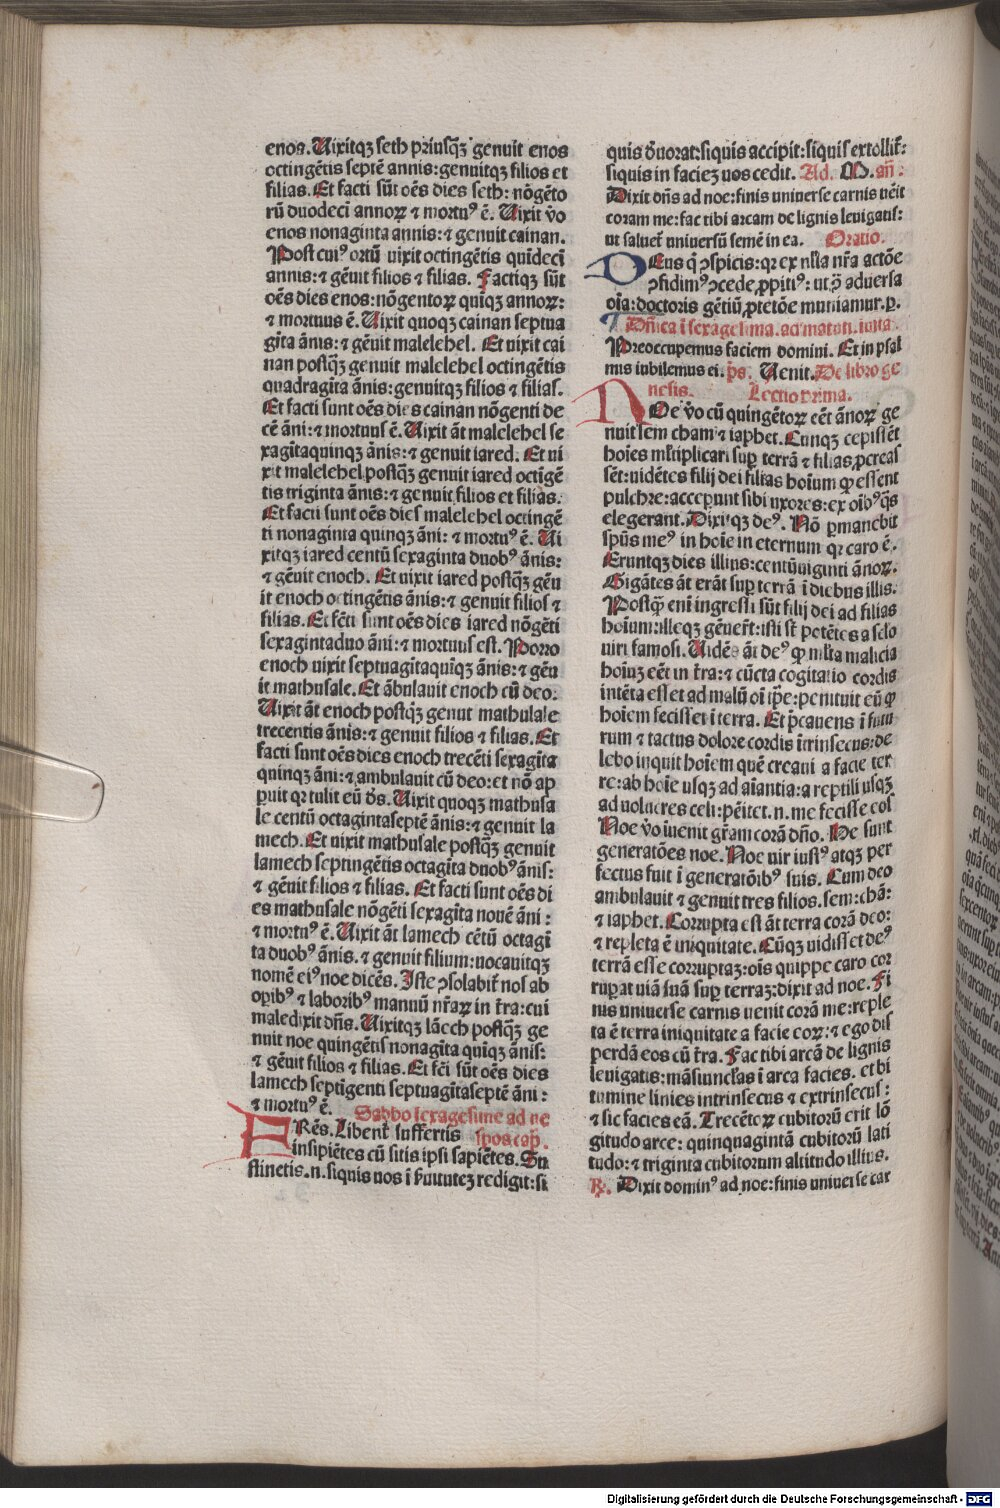 enos. Uixitqꝫ seth priusqꝫ̄ genuit enos
octingētis septē annis: genuitqꝫ filios et
filias. Et facti sūt oēs dies seth: nōgēto
rū duodeci annoꝝ ⁊ mortuꝰ ē. Uixit v̄o
enos nonaginta annis: ⁊ genuit cainan.
Post cuiꝰ ortū vixit octingētis quīdeci
annis: ⁊ gēuit filios ⁊ filias. Factiqꝫ sūt
oēs dies enos: nōgentoꝝ quīqꝫ annoꝝ:
⁊ mortuus ē. Uixit quoqꝫ cainan septua
gīta ānis: ⁊ gēuit malelehel. Et vixit cai
nan postqꝫ̄ genuit malelehel octingētis
quadragīta ānis: genuitqꝫ filios ⁊ filias.
Et facti sunt oēs dies cainan nōgenti de
cē āni: ⁊ mortuus ē. Uixit āt malelehel se
xagītaquinqꝫ ānis: ⁊ genuit iared. Et ui
xit malelehel postqꝫ̄ genuit iared octīgē
tis triginta ānis: ⁊ genuit filios et filias.
Et facti sunt oēs dies malelehel octingē
ti nonaginta quinqꝫ āni: ⁊ mortuꝰ ē. Ui
xitqꝫ iared centū sexaginta duobꝰ ānis:
⁊ gēuit enoch. Et uixit iared postqꝫ̄ gēu
it enoch octingētis ānis: ⁊ genuit filios ⁊
filias. Et fc̄ti sunt oēs dies iared nōgēti
sexagintaduo āni: ⁊ mortuus est. Porro
enoch vixit septuagītaquīqꝫ ānis: ⁊ gēu
it mathusale. Et ābulauit enoch cū deo:
Uixit āt enoch postqꝫ̄ genuit mathusale
trecentis ānis: ⁊ genuit filios ⁊ filias. Et
facti sunt oēs dies enoch trecēti sexagīta
quinqꝫ āni: ⁊ ambulauit cū deo: et nō ap
ꝑuit qꝛ tulit eū ds̄. Uixit quoqꝫ mathusa
le centū octagintaseptē ānis: ⁊ genuit la
mech. Et uixit mathusale postqꝫ̄ genuit
lamech septingētis octagīta duobꝰ ānis:
⁊ gēuit filios ⁊ filias. Et facti sunt oēs di
es mathusale nōgēti sexagīta nouē āni:
⁊ mortuꝰ ē. Uixit āt lamech cētū octagī
ta duobꝰ ānis. ⁊ genuit filium: uocauitqꝫ
nomē eiꝰ noe dicēs. Iste ꝯsolabit᷑ nos ab
oꝑibꝰ ⁊ laboribꝰ manuū nr̄aꝝ in t̄ra: cui
maledixit dn̄s. Uixitqꝫ lāech postqꝫ̄ ge
nuit noe quingētis nonagīta quīqꝫ ānis:
⁊ gēuit filios ⁊ filias. Et fc̄i sūt oēs dies
lamech septīgenti septuagītaseptē āni:
⁊ mortuꝰ ē. Sabbo sexagesime ad ve
FRēs. Libent᷑ suffertis spos cap̄.
insipiētes cū sitis ipsi sapiētes. Su
stinetis. n. siquis uos ī ẜuituteꝫ redigit: si
quis deuorat: siquis accipit: siquis extollit᷑:
siquis in facieꝫ uos cedit. Ad. M. an̄:
Dixit dn̄s ad noe: finis uniuerse carnis vēit
coram me: fac tibi arcam de lignis leuigatis:
ut saluet᷑ uniuersū semē in ea. Oratio.
DEus q̄ ꝯspicis: qꝛ ex nl̄la nr̄a actōe
ꝯfidimꝰ ꝯcede ꝓpitiꝰ: ut ꝯ̄ aduersa
oīa: doctoris gētiū ꝓtetōe muniamur. ꝑ.
Dn̄ica ī sexagesima. ad matuti. iuita.
Preoccupemus faciem domini. Et in psal
mis iubilemus ei. p̄s. Uenit. De libro ge
nesis. Lectio prima.
NOe v̄o cū quingētoꝝ eēt ānoꝝ ge
nuit sem cham ⁊ iaphet. Cunqꝫ cepissēt
hoīes ml̄tiplicari suꝑ terrā ⁊ filias ꝓcreas
sēt: uidētes filij dei filias hoīum qꝙ essent
pulchre: acceꝑunt sibi uxores: ex oībꝰ q̄s
elegerant. Dixitqꝫ deꝰ. Nō ꝑmanebit
spūs meꝰ in hoīe in eternum qꝛ caro ē.
Eruntqꝫ dies illius: centūuiginti ānoꝝ.
Gigātes āt erāt suꝑ terrā ī diebus illis.
Postqꝙ̄ enī ingressi sūt filij dei ad filias
hoīum: illeqꝫ gēuer̄t: isti st̄ potētes a sc̄lo
viri famosi. Uidēs āt deꝰ qꝙ ml̄ta malicia
hoīuꝫ eēt in t̄ra: ⁊ cūcta cogitatio cordis
intēta esset ad malū oī tp̄e: penituit eū qꝙ
hoīem fecisset ī terra. Et p̄cauens ī futu
rum ⁊ tactus dolore cordis ītrinsecus: de
lebo inquit hoīem quē creaui a facie ter
re: ab hoīe usqꝫ ad aīantia: a reptili usqꝫ
ad uolucres celi: pēitet. n. me fecisse eos
Noe v̄o īuenit gr̄am corā dn̄o. He sunt
generatōes noe. Noe uir iustꝰ atqꝫ per
fectus fuit ī generatōibꝰ suis. Cum deo
ambulauit ⁊ genuit tres filios. sem: chā:
⁊ iaphet. Corrupta est āt terra corā deo:
⁊ repleta ē iniquitate. Cūqꝫ uidisset deꝰ
terrā esse corruptaꝫ: oīs quippe caro cor
ruꝑat uiā suā suꝑ terraꝫ: dixit ad noe. Fi
nis uniuerse carnis uenit corā me: reple
ta ē terra iniquitate a facie eoꝝ: ⁊ ego dis
ꝑdā eos cū t̄ra. Fac tibi arcā de lignis
leuigatis: māsiunc̄las ī arca facies. et bi
tumine linies intrinsecus ⁊ extrinsecus:
⁊ sic facies eā. Trecētoꝝ cubitorū erit lō
gitudo arce: quinquagintā cubitorū lati
tudo: ⁊ triginta cubitorum altitudo illius.
℞. Dixit dominꝰ ad noe: finis uniuerse car
Digitalisierung gefördert durch die Deutsche Forschungsgemeinschaft - DFG